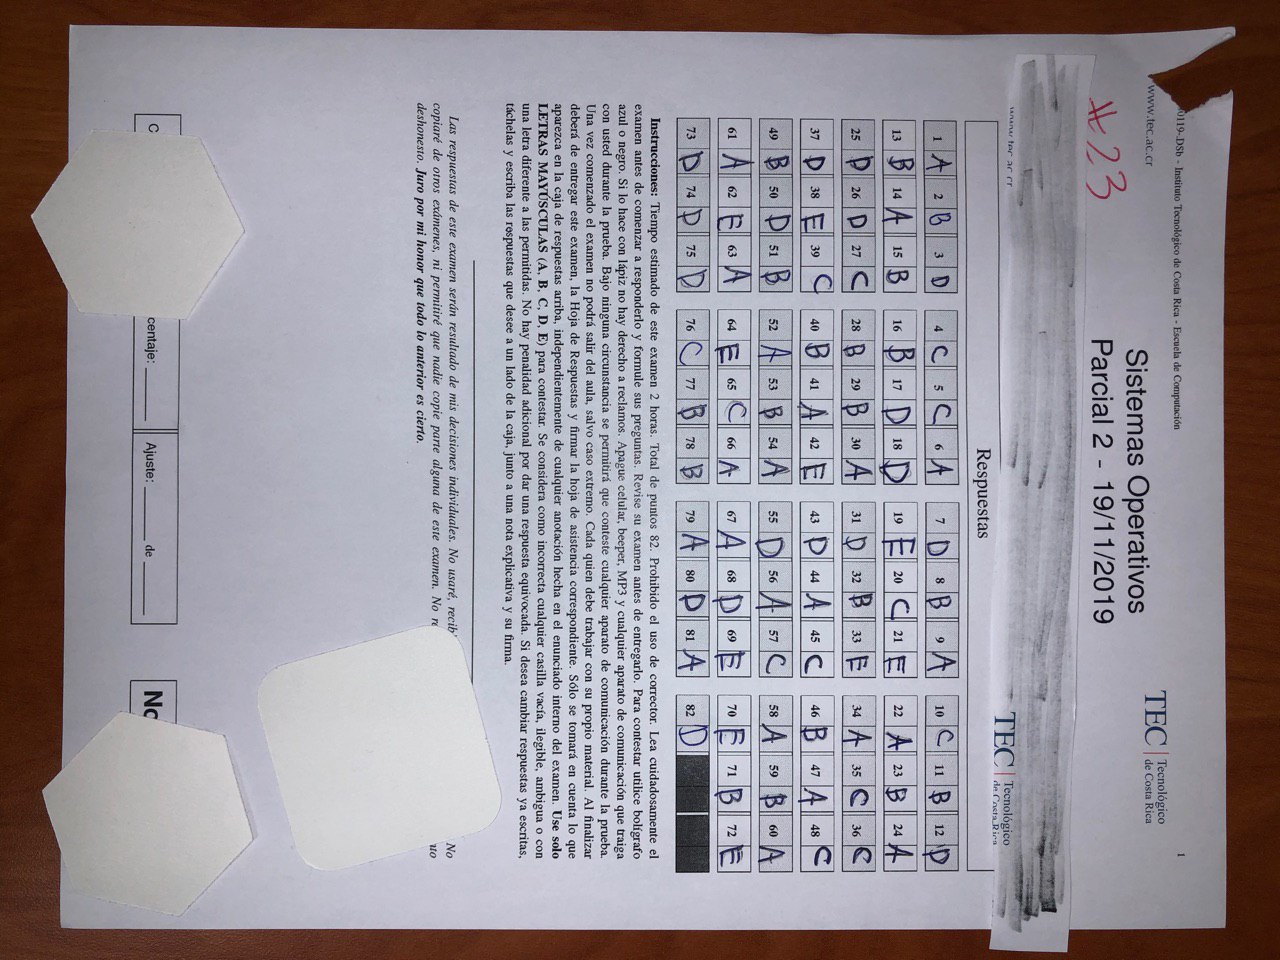 0119--DSb - Instituto Tecnológico de Costa Rica - Escuela de Computación
1
www.tec.ac.cr
TEC | Tecnológico de Costa Rica
#23
Sistemas Operativos
Parcial 2 - 19/11/2019
www.tec.ac.cr
TEC | Tecnológico de Costa Rica
Respuestas
1 A 2 B 3 D 4 C 5 C 6 A 7 D 8 B 9 A 10 C 11 B 12 D
13 B 14 A 15 B 16 B 17 D 18 D 19 E 20 C 21 E 22 A 23 B 24 A
25 D 26 D 27 C 28 B 29 B 30 A 31 D 32 B 33 E 34 A 35 C 36 C
37 D 38 E 39 C 40 B 41 A 42 E 43 D 44 A 45 C 46 B 47 A 48 C
49 B 50 D 51 B 52 A 53 B 54 A 55 D 56 A 57 C 58 A 59 B 60 A
61 A 62 E 63 A 64 E 65 C 66 A 67 A 68 D 69 E 70 E 71 B 72 E
73 D 74 D 75 D 76 C 77 B 78 B 79 A 80 D 81 A 82 D
Instrucciones: Tiempo estimado de este examen 2 horas. Total de puntos 82. Prohibido el uso de corrector. Lea cuidadosamente el
examen antes de comenzar a responderlo y formule sus preguntas. Revise su examen antes de entregarlo. Para contestar utilice bolígrafo
azul o negro. Si lo hace con lápiz no hay derecho a reclamos. Apague celular, beeper, MP3 y cualquier aparato de comunicación que traiga
con usted durante la prueba. Bajo ninguna circunstancia se permitirá que conteste cualquier aparato de comunicación durante la prueba.
Una vez comenzado el examen no podrá salir del aula, salvo caso extremo. Cada quien debe trabajar con su propio material. Al finalizar
deberá de entregar este examen, la Hoja de Respuestas y firmar la hoja de asistencia correspondiente. Sólo se tomará en cuenta lo que
aparezca en la caja de respuestas arriba, independientemente de cualquier anotación hecha en el enunciado interno del examen. Use solo
LETRAS MAYÚSCULAS (A, B, C, D, E) para contestar. Se considera como incorrecta cualquier casilla vacía, ilegible, ambigua o con
una letra diferente a las permitidas. No hay penalidad adicional por dar una respuesta equivocada. Si desea cambiar respuestas ya escritas,
táchelas y escriba las respuestas que desee a un lado de la caja, junto a una nota explicativa y su firma.
Las respuestas de este examen serán resultado de mis decisiones individuales. No usaré, recib No
copiaré de otros exámenes, ni permitiré que nadie copie parte alguna de este examen. No re
deshonesto. Juro por mi honor que todo lo anterior es cierto.
centaje: Ajuste: de No